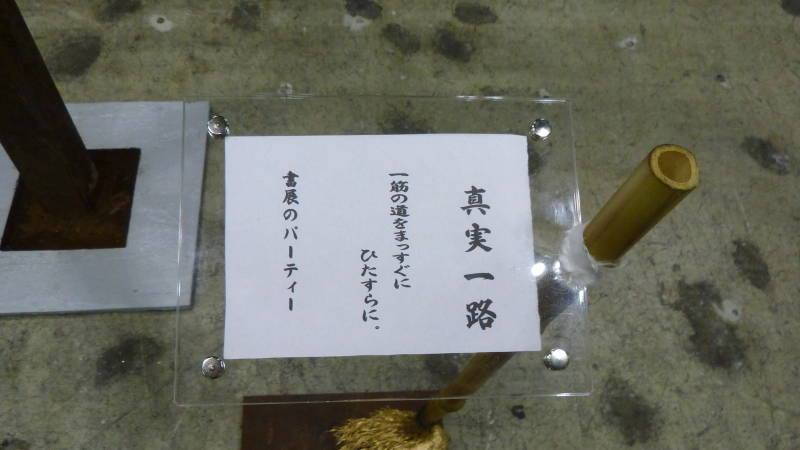 真実一路
一筋の道をまっすぐに
ひたすらに。
書展のパーティー